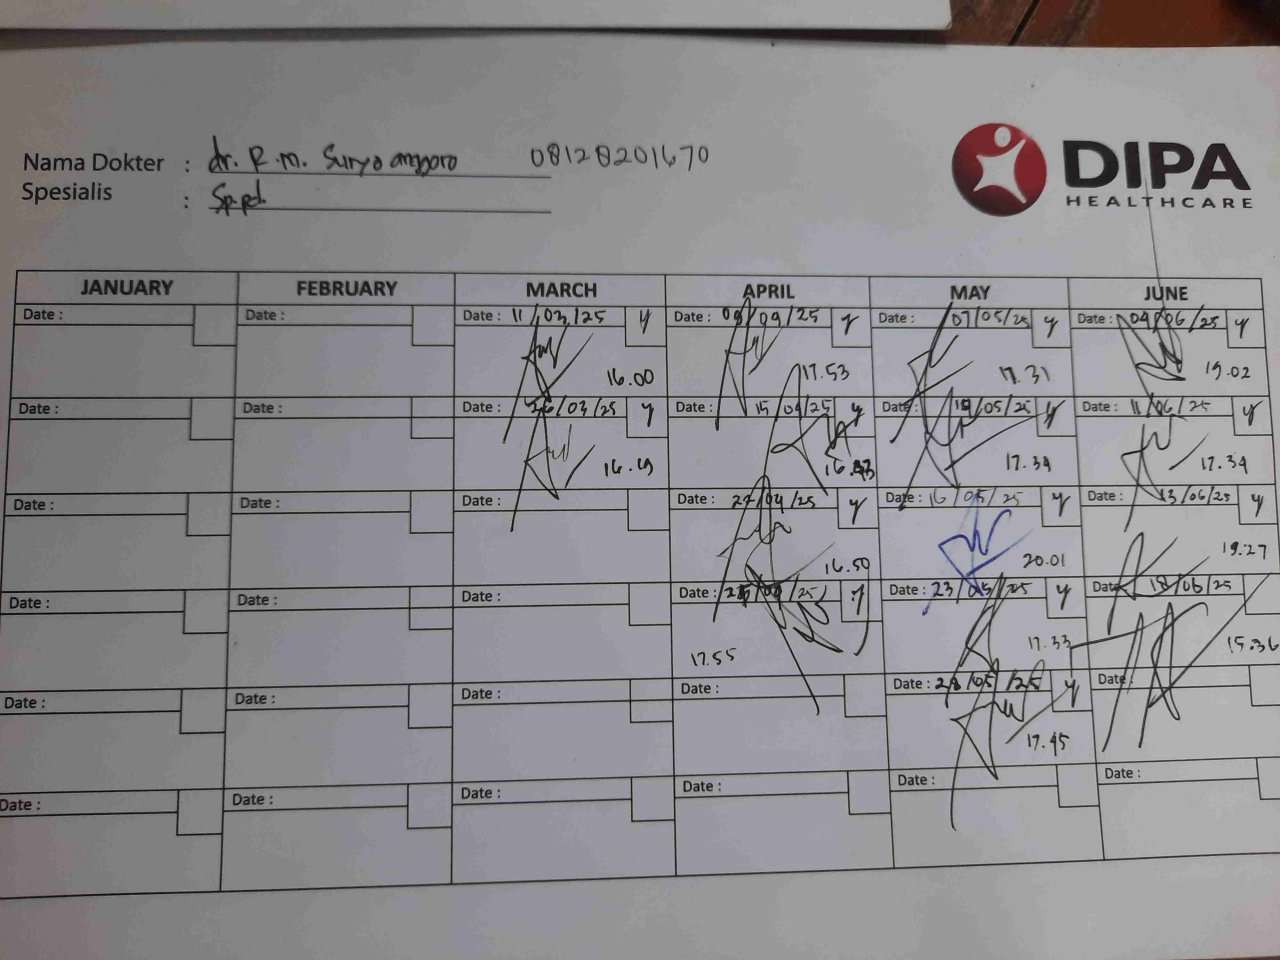 Nama Dokter : dr. R.M. Suryo anggoro 08128201670
Spesialis : Sp.pd.
DIPA
HEALTHCARE
JANUARY FEBRUARY MARCH APRIL MAY JUNE
Date : Date : Date : 11/03/25 y Date : 09/04/25 y Date : 07/05/25 y Date : 04/06/25 y
16.00 17.53 17.31 19.02
Date : Date : Date : 26/03/25 y Date : 15/04/25 y Date : /05/25 y Date : 11/06/25 y
16.49 17.34 17.34
Date : Date : Date : Date : 22/04/25 y Date : 16/05/25 y Date : 13/06/25 y
16.50 20.01 19.27
Date : Date : Date : Date : Date : 23/05/25 y Date : 18/06/25
17.55 17.33 15.36
Date : Date : Date : Date : Date : 28/05/25 y Date :
17.45
Date : Date : Date : Date : Date : Date :